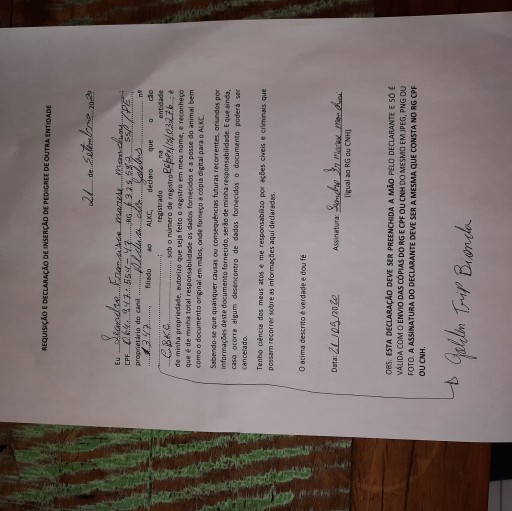 REQUISIÇÃO E DECLARAÇÃO DE INSERÇÃO DE PEDIGREE DE OUTRA ENTIDADE
21 de Setembro 2020
Eu Leandro Francisco
CPF RG
proprietário do canil nº
1347 filiado ao ALKC, declaro que o cão
registrado na entidade
CBKC sob o número de registro é
de minha propriedade, autorizo que seja feito o registro em meu nome, e reconheço
que é de minha total responsabilidade os dados fornecidos e a posse do animal bem
como o documento original em mãos, onde forneço a cópia digital para o ALKC.
Sabendo-se que quaisquer causas ou consequências futuras recorrentes, oriundos por
informações deste documento fornecido, serão de minha responsabilidade. E que ainda,
caso ocorra algum desencontro de dados fornecidos o documento poderá ser
cancelado.
Tenho ciência dos meus atos e me responsabilizo por ações cíveis e criminais que
possam recorrer sobre as informações aqui declaradas.
O acima descrito é verdade e dou fé
Data: 21/09/2020 Assinatura:
(Igual ao RG ou CNH)
OBS: ESTA DECLARAÇÃO DEVE SER PREENCHIDA A MÃO PELO DECLARANTE E SÓ É
VÁLIDA COM O ENVIO DAS CÓPIAS DO RG E CPF OU CNH DO MESMO EM JPEG, PNG OU
FOTO. A ASSINATURA DO DECLARANTE DEVE SER A MESMA QUE CONSTA NO RG CPF
OU CNH.
Golden Trip Bianca